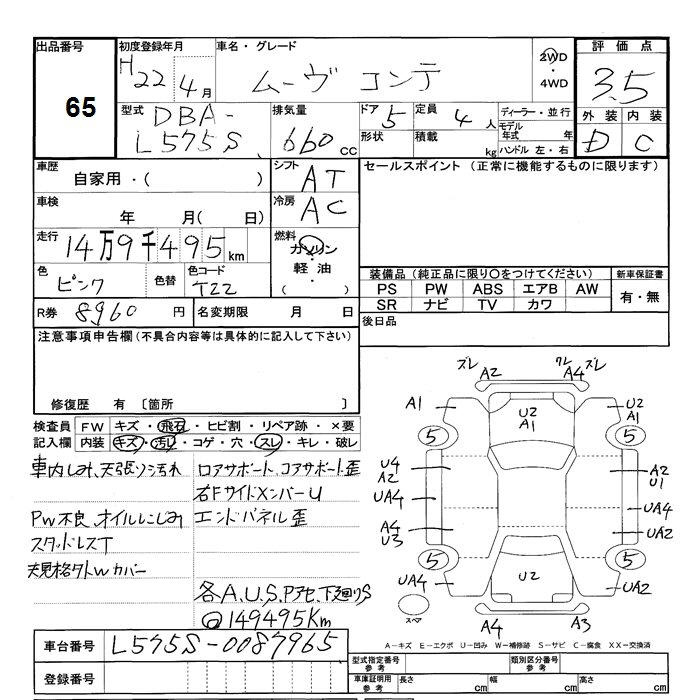 出品番号 初度登録年月 車名・グレード 評価点
65
H22年4月 ムーヴ コンテ 2WD・4WD 3.5
型式 排気量 ドア 定員 ディーラー・並行 外装 内装
DBA-L575S 660cc 5 4人 D C
形状 積載 kg モデル年式 年
ハンドル 左・右
車歴 シフト セールスポイント (正常に機能するものに限ります)
自家用・( ) AT
車検 冷房
年 月( 日) AC
走行 燃料
14万9千495km ガソリン・軽油・( )
色 色替 色コード 装備品(純正品に限り○をつけてください) 新車保証書
ピンク T22 PS PW ABS エアB AW 有・無
SR ナビ TV カワ
R券 8960円 名変期限 月 日 後日品
注意事項申告欄(不具合内容等は具体的に記入して下さい)
修復歴 有 〔箇所 〕
検査員記入欄 FW キズ・飛石・ヒビ割・リペア跡・×要
内装 キズ・汚れ・コゲ・穴・スレ・キレ・破レ
車内しみ、天張り汚れ
PW不良、オイルにじみ
スタッドレスT
規格外タトゥカバー
コアサポート、コアサポート歪
右FサイドメンバーU
エンドパネル歪
各A.U.S.Pアセ、下廻りS
@149495Km
ズレ A2 クレ A4 ズレ
A1 U2 A1 U2 A1
5 5
U4 A2 A2 U1
UA4 UA4
A4 U3 UA2
5 5
UA4 U2 UA2
スペア A4 A3
A-キズ E-エクボ U-凹み W-補修跡 S-サビ C-腐食 XX-交換済
車台番号 L575S-0087965
登録番号
型式指定番号 参考 類別区分番号 参考
車庫証明用 参考 長さ cm 幅 cm 高さ cm